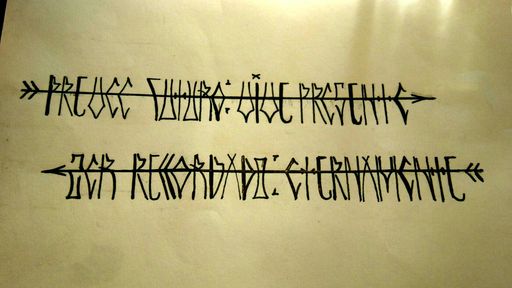 PREVEE FUTURO: VIVE PRESENTE
SER RECORDADO: ETERNAMENTE